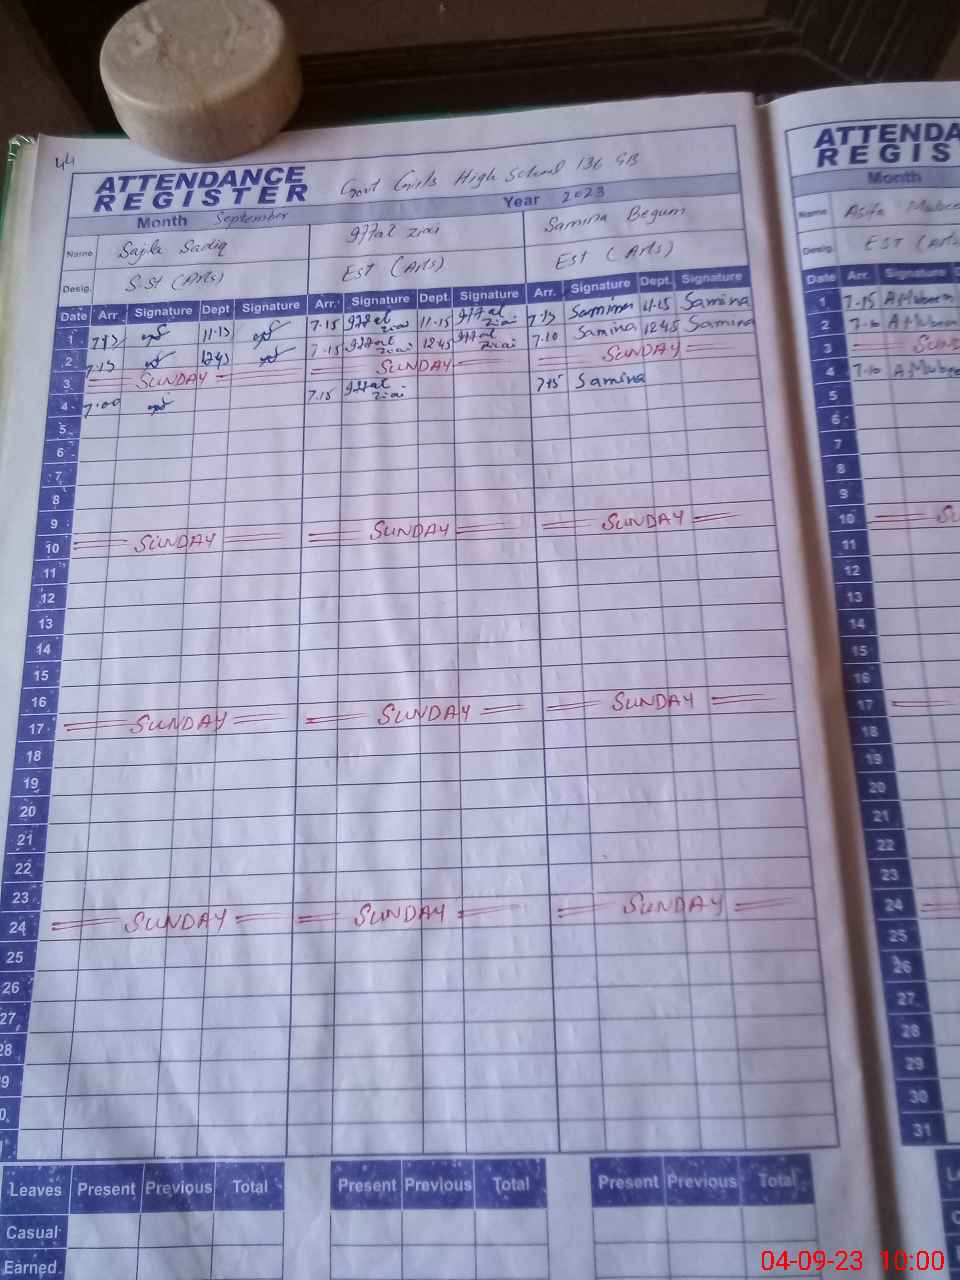 44
ATTENDANCE REGISTER Govt Girls High School 136 GB
Month September Year 2023
Name Sajla Sadiq Iffat ziai Samina Begum
Desig. S.St (Arts) EST (Arts) EST (Arts)
Date Arr. Signature Dept Signature Arr. Signature Dept. Signature Arr. Signature Dept. Signature
1 7.15 11.15 7.15 Iffat ziai 11.15 Iffat ziai 7.15 Samina 11.15 Samina
2 7.15 1245 7.15 Iffat ziai 1245 Iffat ziai 7.10 Samina 1245 Samina
3 SUNDAY SUNDAY SUNDAY
4 7.00 7.15 Iffat ziai 7.15 Samina
5
6
7
8
9
10 SUNDAY SUNDAY SUNDAY
11
12
13
14
15
16
17 SUNDAY SUNDAY SUNDAY
18
19
20
21
22
23
24 SUNDAY SUNDAY SUNDAY
25
26
27
28
Leaves Present Previous Total Present Previous Total Present Previous Total
Casual
Earned
ATTENDA
REGIS
Month
Name Asifa
Desig. EST (Arts
Date Arr. Signature
1 7.15 A Mubeen
2 7.10 A Mubeen
3
4 7.10 A Mubeen
5
6
7
8
9
10
11
12
13
14
15
16
17
18
19
20
21
22
23
24
25
26
27
28
29
30
31
04-09-23 10:00